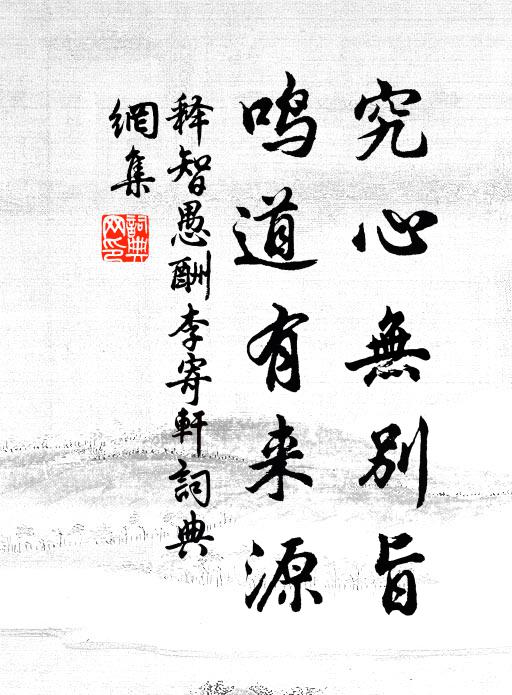 究心無別旨
鸣道有来源
释智愚酬李寄軒詞典
網集
詞典
网印